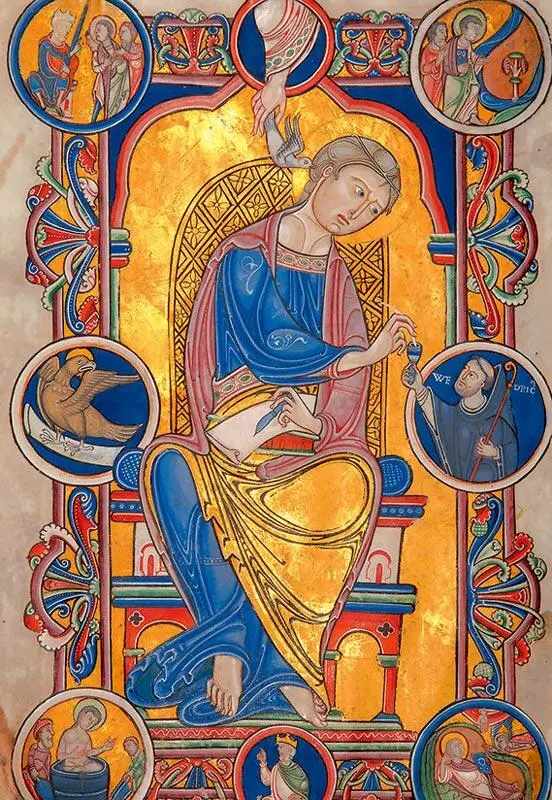 WE DRIC'